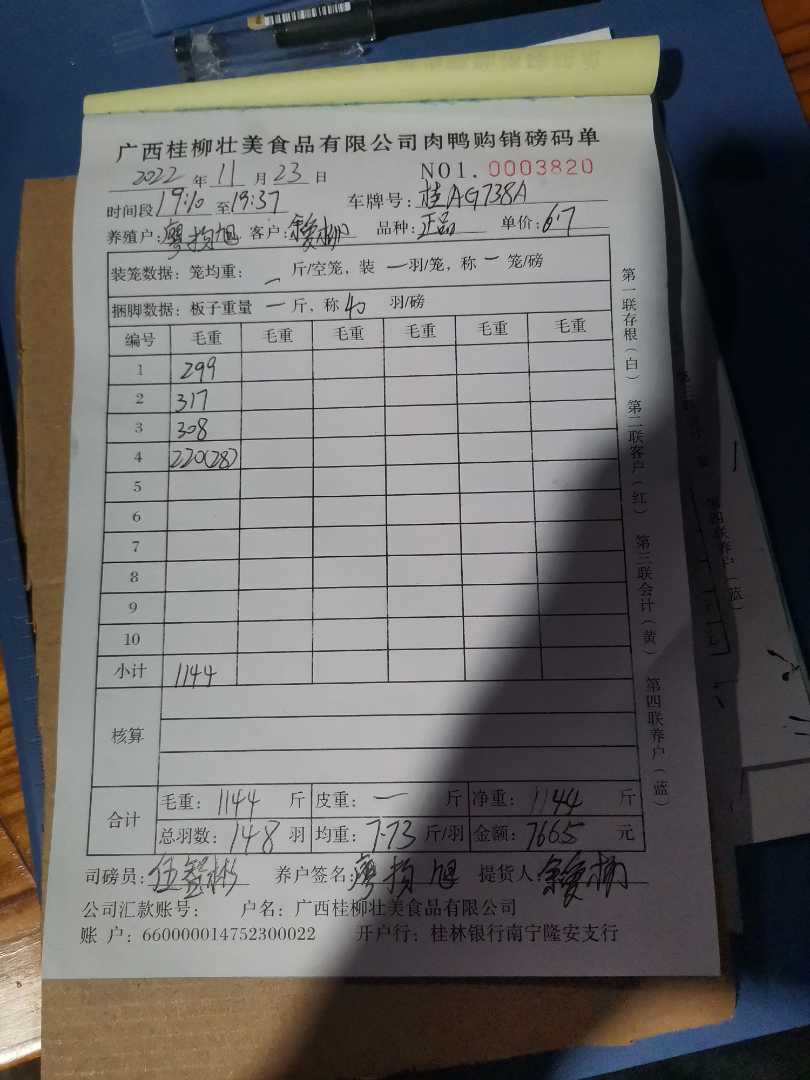 广西桂柳壮美食品有限公司肉鸭购销磅码单
2022 年 11 月 23 日 NO1. 0003820
时间段 19:10 至 19:37 车牌号: 桂AG738A
养殖户: 廖 旭 客户: 品种: 正品 单价: 6.7
装笼数据: 笼均重: 一 斤/空笼, 装 一 羽/笼, 称 一 笼/磅
捆脚数据: 板子重量 一 斤, 称 40 羽/磅
编号 毛重 毛重 毛重 毛重 毛重 毛重
1 299
2 317
3 308
4 220(28)
5
6
7
8
9
10
小计 1144
核算
合计 毛重: 1144 斤 皮重: 一 斤 净重: 1144 斤
总羽数: 148 羽 均重: 7.73 斤/羽 金额: 7665 元
司磅员: 伍 彬 养户签名: 廖 旭 提货人:
公司汇款账号: 户名: 广西桂柳壮美食品有限公司
账 户: 660000014752300022 开户行: 桂林银行南宁隆安支行
第一联存根(白) 第二联客户(红) 第三联会计(黄) 第四联养户(蓝)